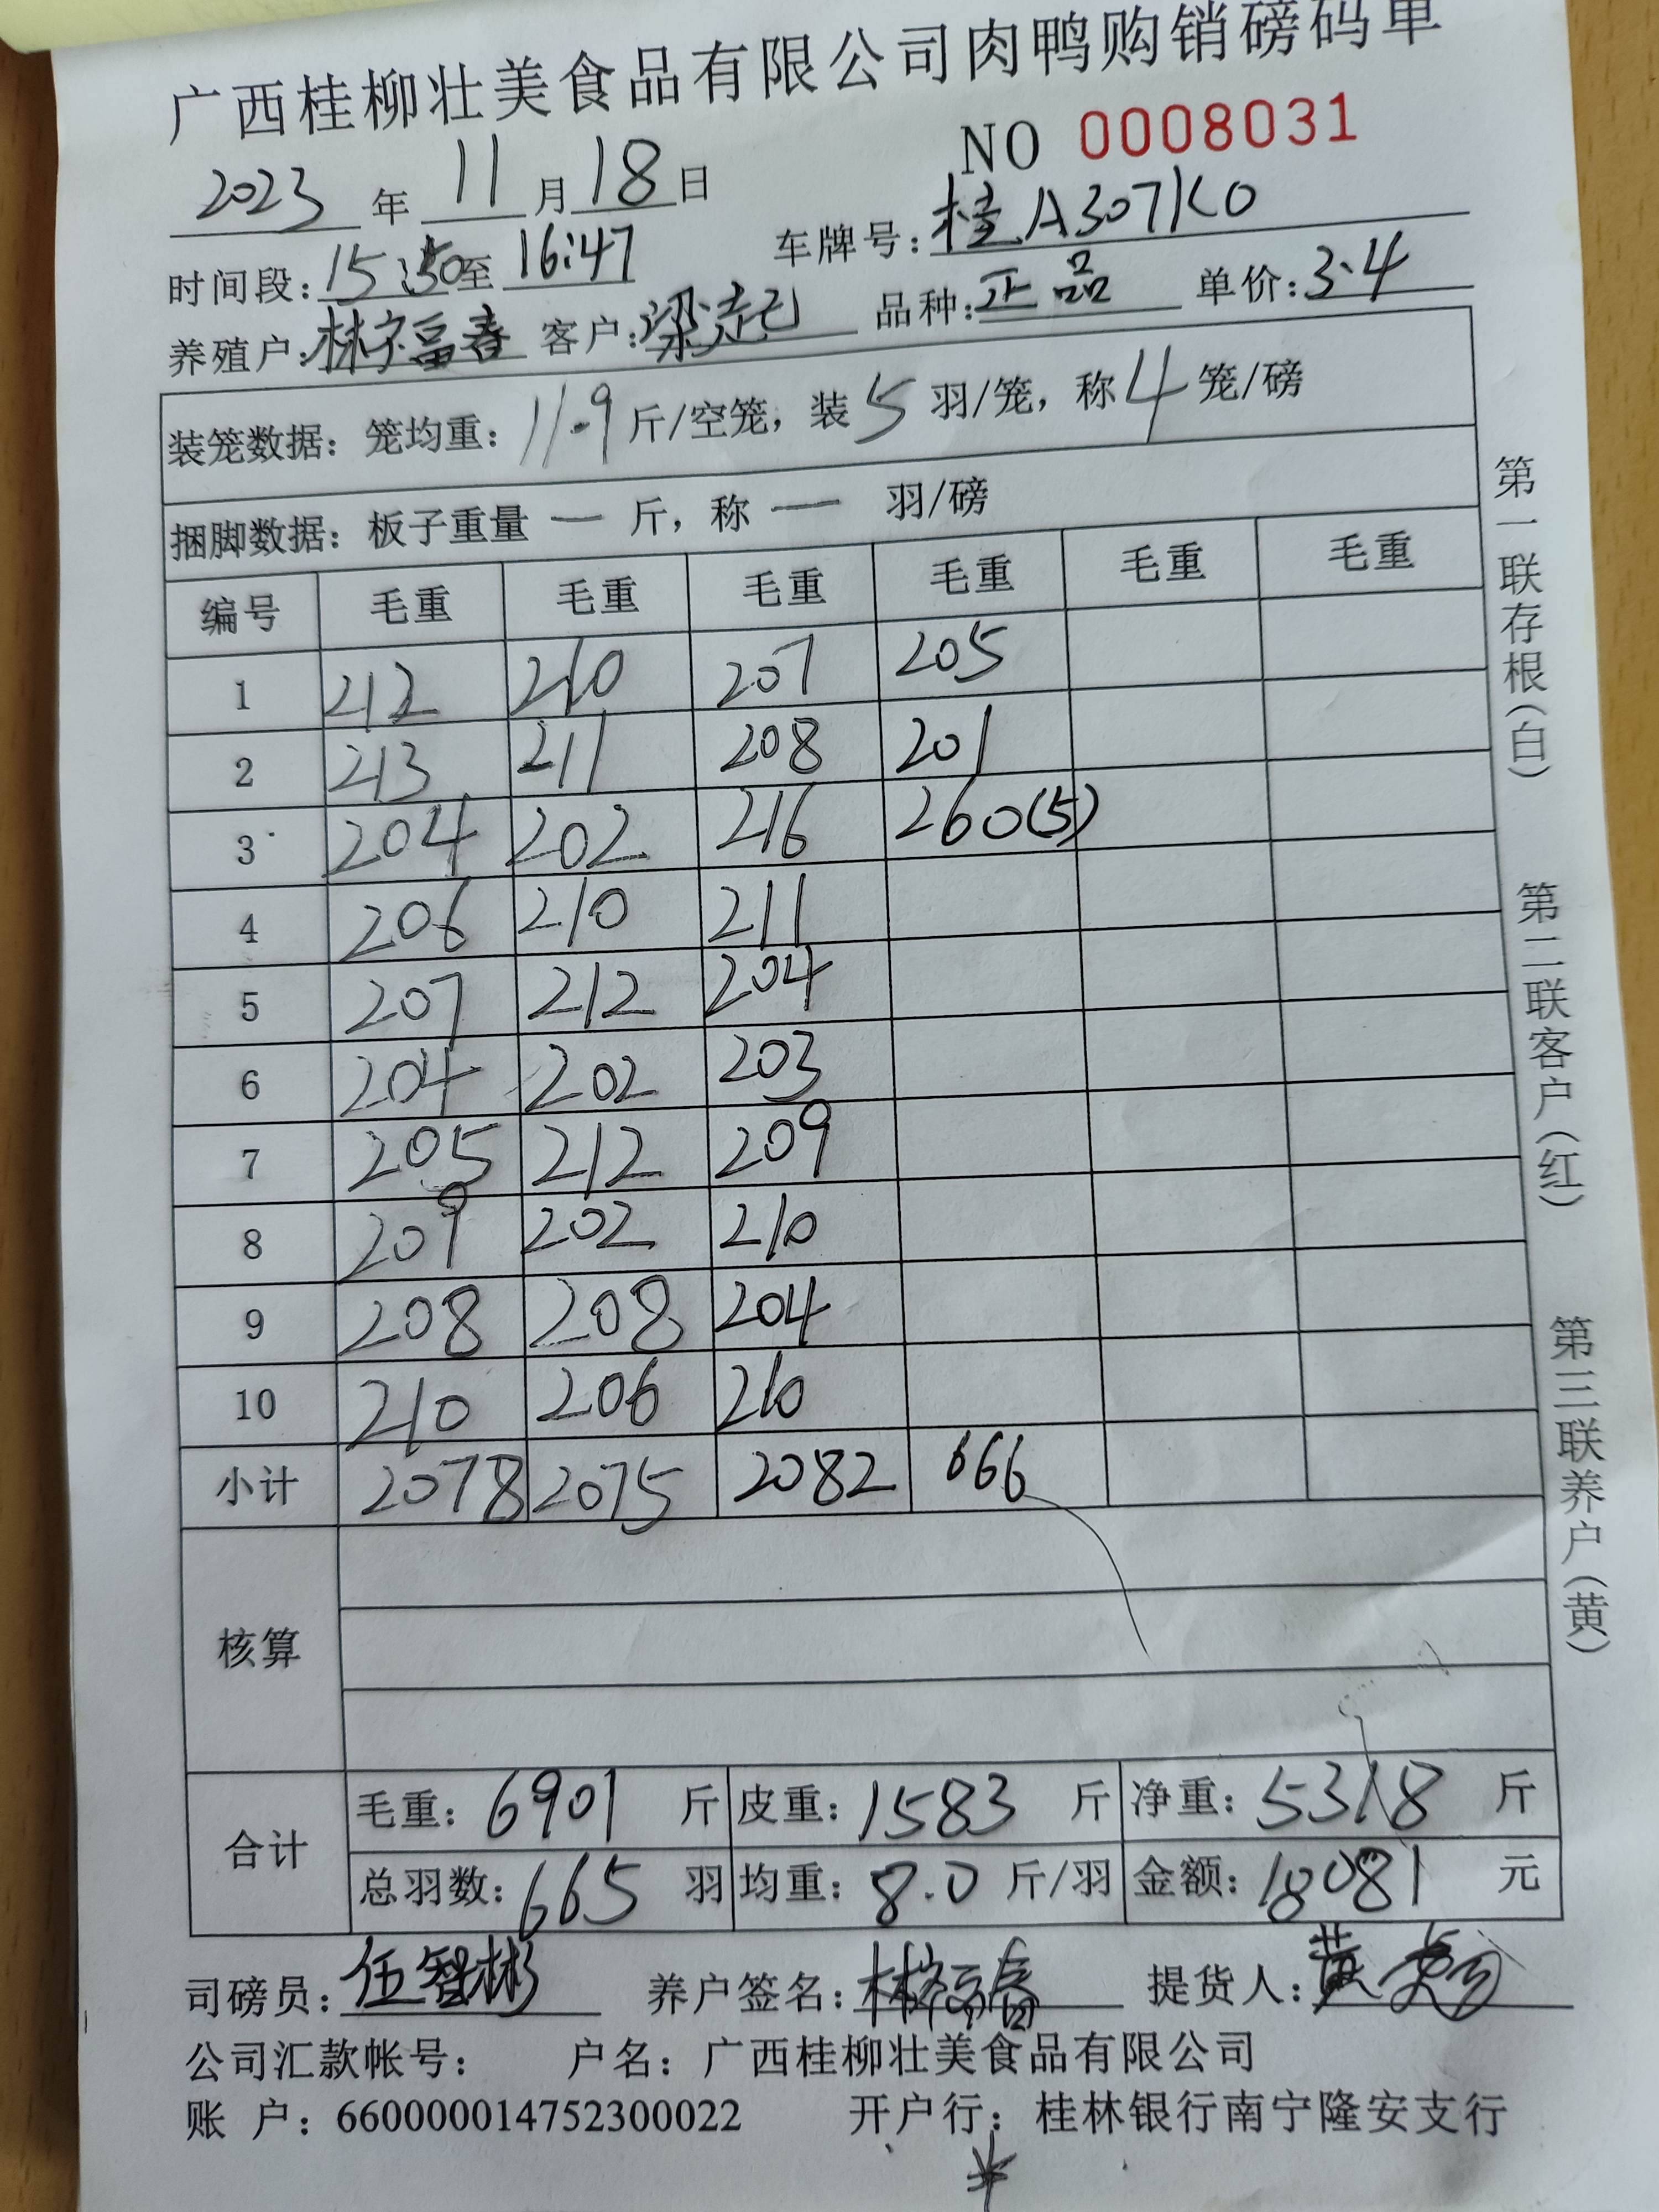 广西桂柳壮美食品有限公司肉鸭购销磅码单
NO 0008031
2023 年 11 月 18 日
时间段: 15:50 至 16:47 车牌号: 桂A307K0
养殖户: 林福春 客户: 梁 品种: 正品 单价: 3.4
装笼数据: 笼均重: 11.9 斤/空笼, 装 5 羽/笼, 称 4 笼/磅
捆脚数据: 板子重量 — 斤, 称 — 羽/磅
编号 毛重 毛重 毛重 毛重 毛重 毛重
1 212 210 207 205
2 213 211 208 201
3 204 202 216 260(5)
4 206 210 211
5 207 212 204
6 204 202 203
7 205 212 209
8 209 202 210
9 208 208 204
10 210 206 210
小计 2078 2075 2082 666
核算
合计 毛重: 6901 斤 皮重: 1583 斤 净重: 5318 斤
总羽数: 665 羽 均重: 8.0 斤/羽 金额: 18081 元
司磅员: 伍智彬 养户签名: 林福春 提货人: 黄
公司汇款帐号: 户名: 广西桂柳壮美食品有限公司
账 户: 660000014752300022 开户行: 桂林银行南宁隆安支行
第一联存根(白)
第二联客户(红)
第三联养户(黄)